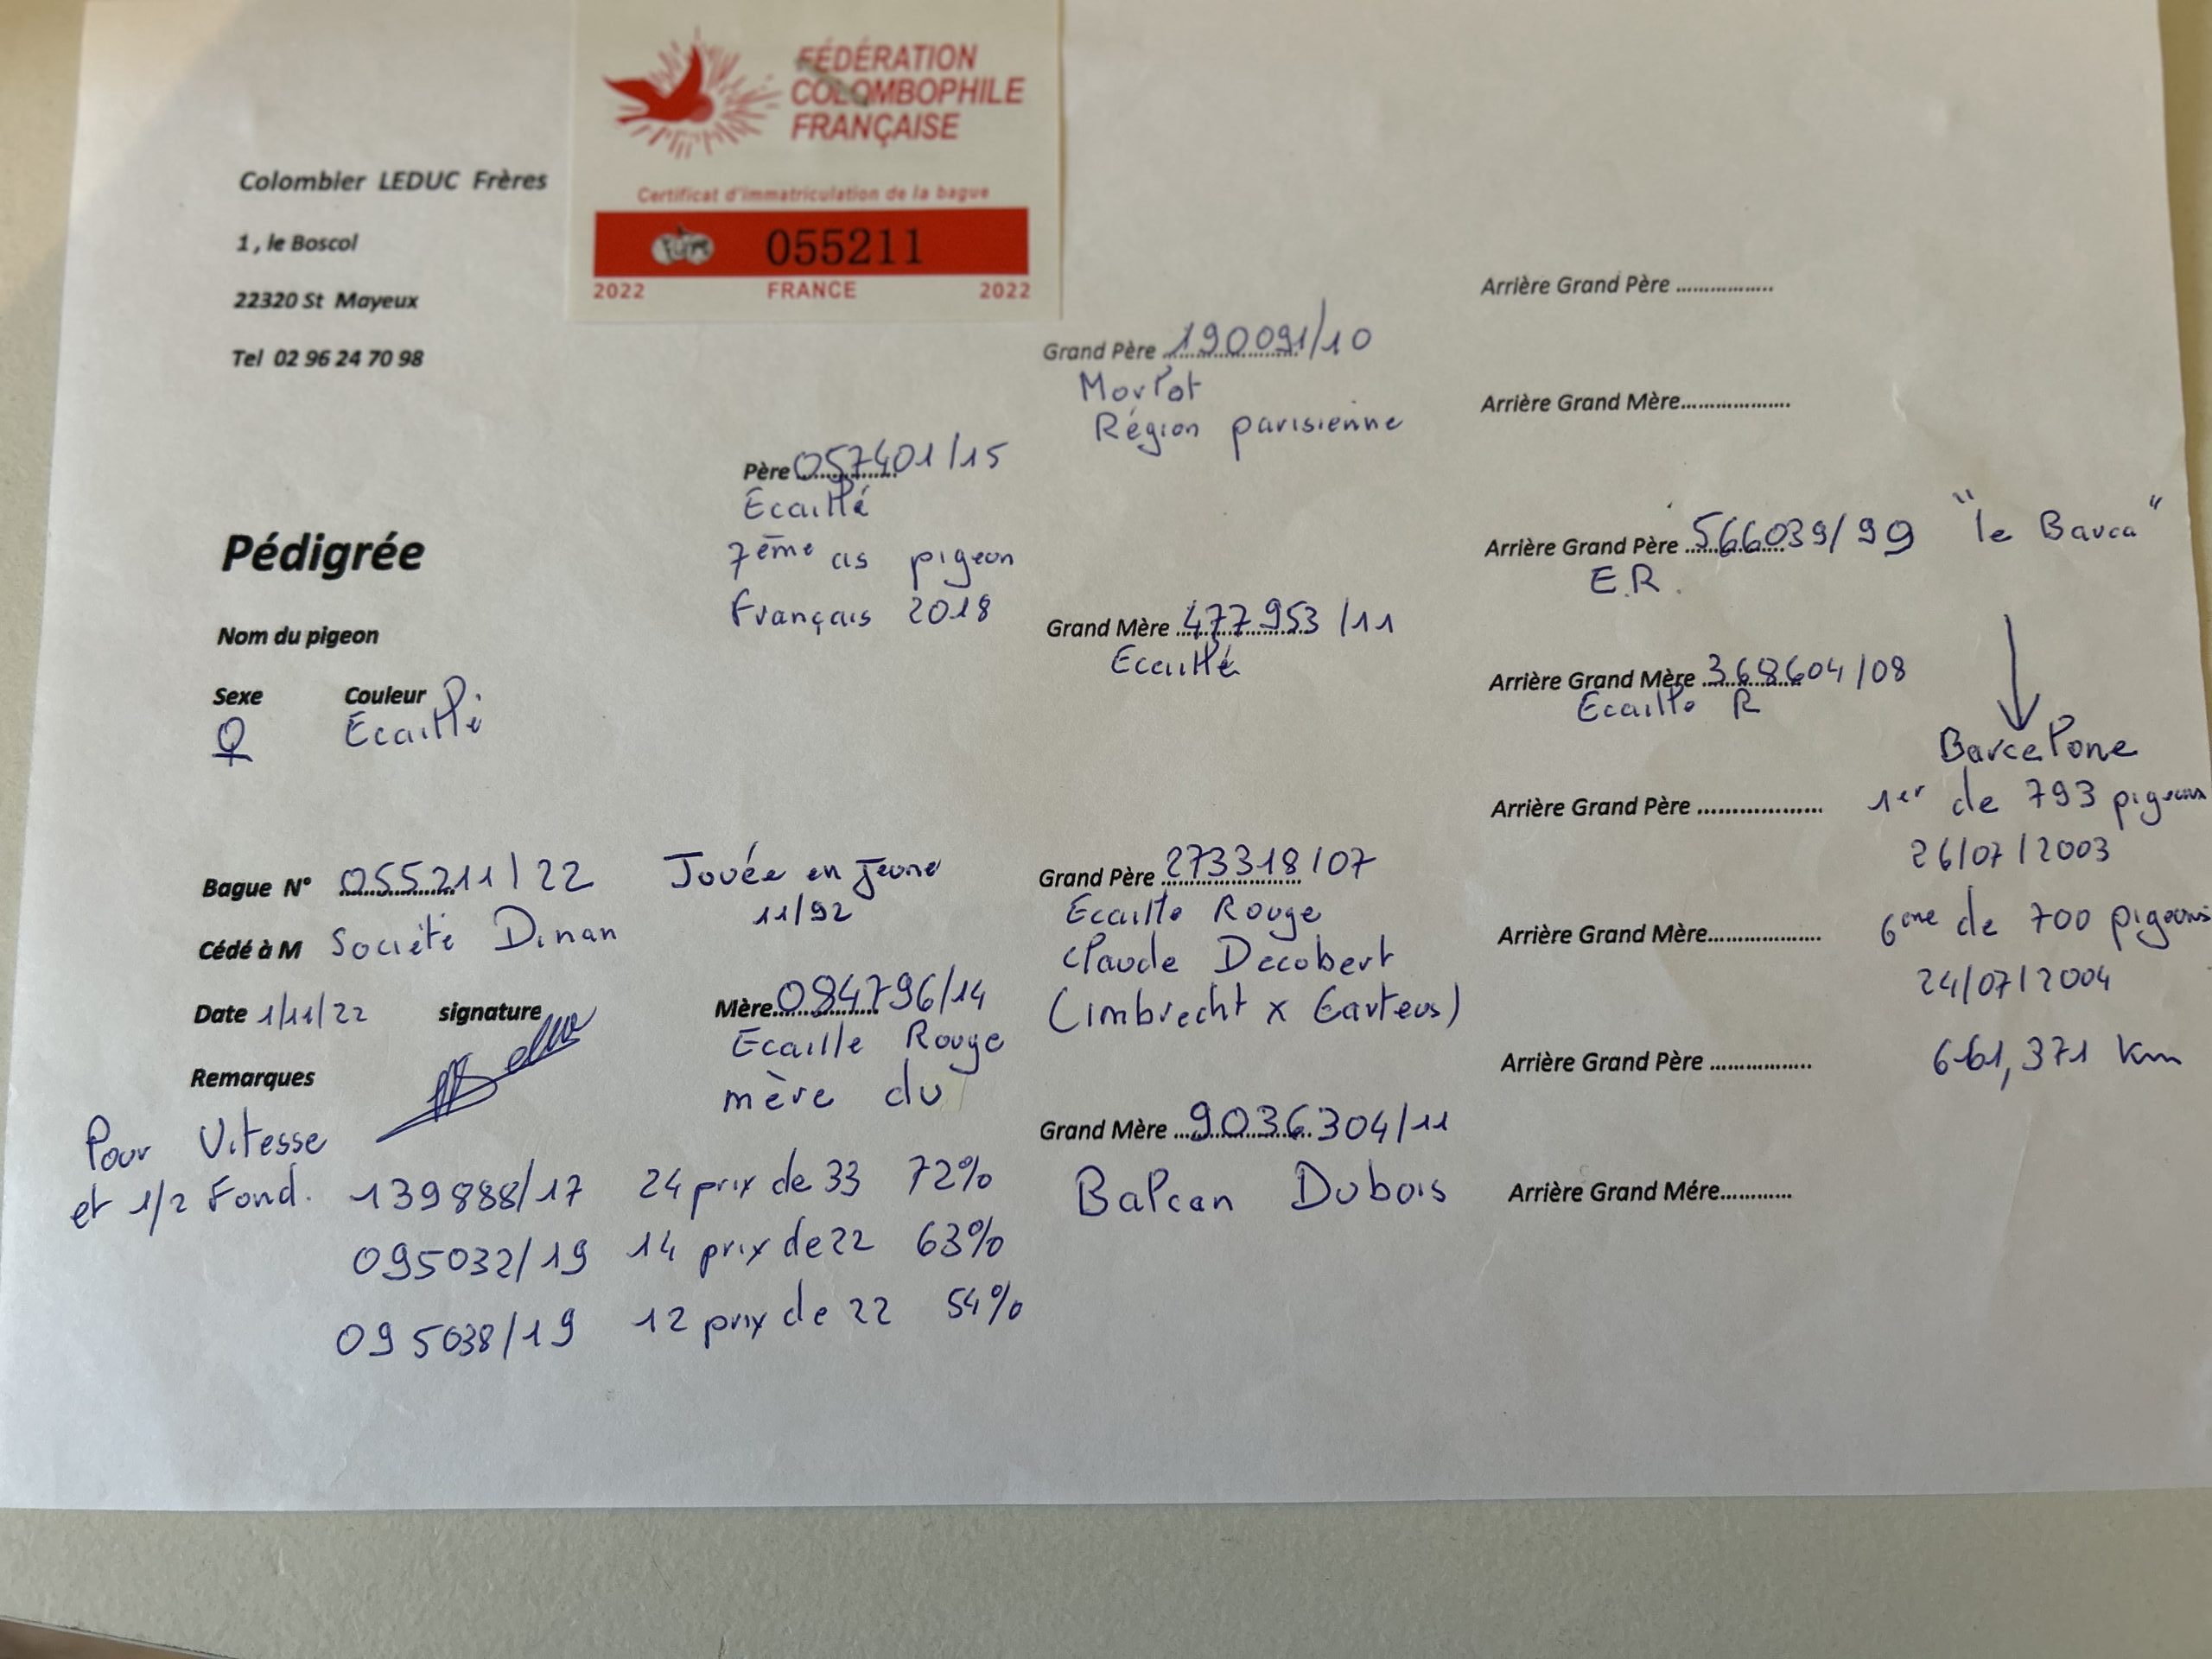 FÉDÉRATION
COLOMBOPHILE
FRANÇAISE
Certificat d'immatriculation de la bague
055211
2022 FRANCE 2022
Colombier LEDUC Frères
1 , le Boscol
22320 St Mayeux
Tel 02 96 24 70 98
Pédigrée
Nom du pigeon
Sexe Couleur
♀ Ecaillé
Bague N° 055211/22 Jouée en Jeune
11/92
Cédé à M Société Dinan
Date 1/11/22 signature
Remarques
Pour Vitesse
et 1/2 Fond.
Père 057401/15
Ecaillé
7ème as pigeon
Français 2018
Mère 084796/14
Ecaille Rouge
mère du
139888/17 24 prix de 33 72%
095032/19 14 prix de 22 63%
095038/19 12 prix de 22 54%
Grand Père 190091/10
Morlot
Région parisienne
Grand Mère 477953/11
Ecaillé
Grand Père 273318/07
Ecaille Rouge
Claude Decobert
(imbrecht x
Grand Mère 9036304/11
Balcan Dubois
Arrière Grand Père ................
Arrière Grand Mère..................
Arrière Grand Père 566039/99 "le Barca"
E.R.
Arrière Grand Mère 368604/08
Ecaille R
Arrière Grand Père ..................
Arrière Grand Mère..................
Arrière Grand Père ................
Arrière Grand Mére............
Barcelone
1er de 793 pigeons
26/07/2003
6ème de 700 pigeons
24/07/2004
661,371 Km